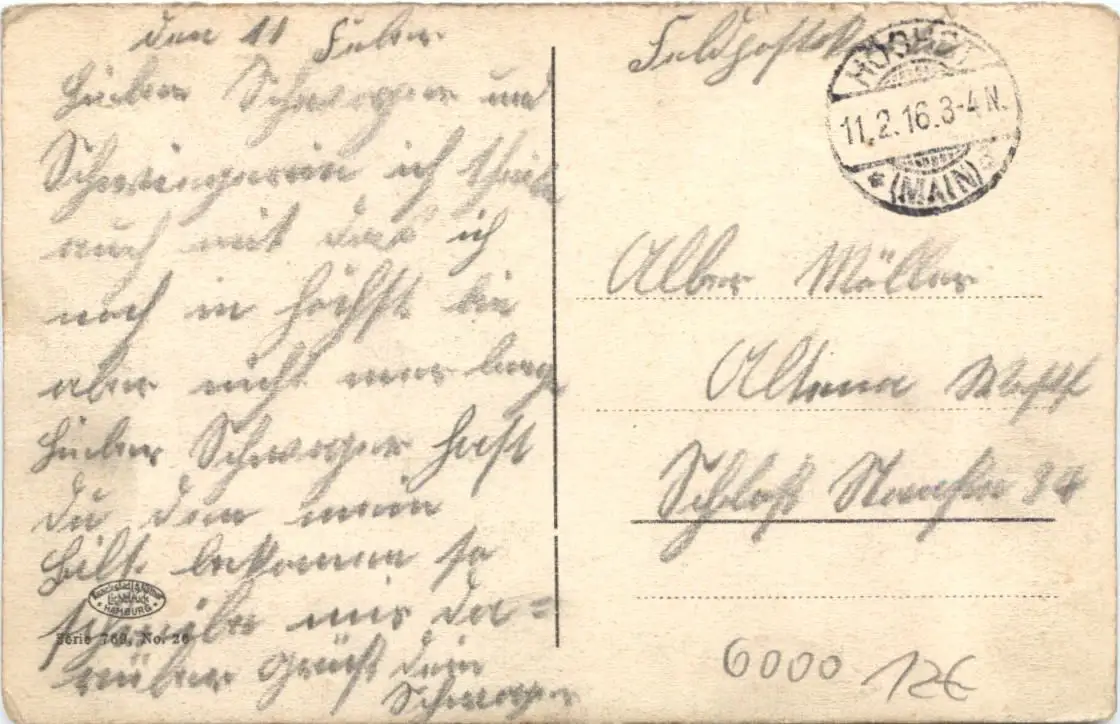 den 11 Feber
Lieber Schwager und
Schwiegerin ich theile
auch mit das ich
noch in Höchst bin
aber nicht mer lange
Lieber Schwager hast
du den mein
Bilt bekomen so
schreibe mir da=
rüber grüst dein
Schwager
HAMBURG
Serie 769, No. 26
Feldpostk
HÖCHST
11.2.16.3-4N.
* (MAIN)
Alber Möller
Altena Westf
Schloss Strasse 34
6000 12€